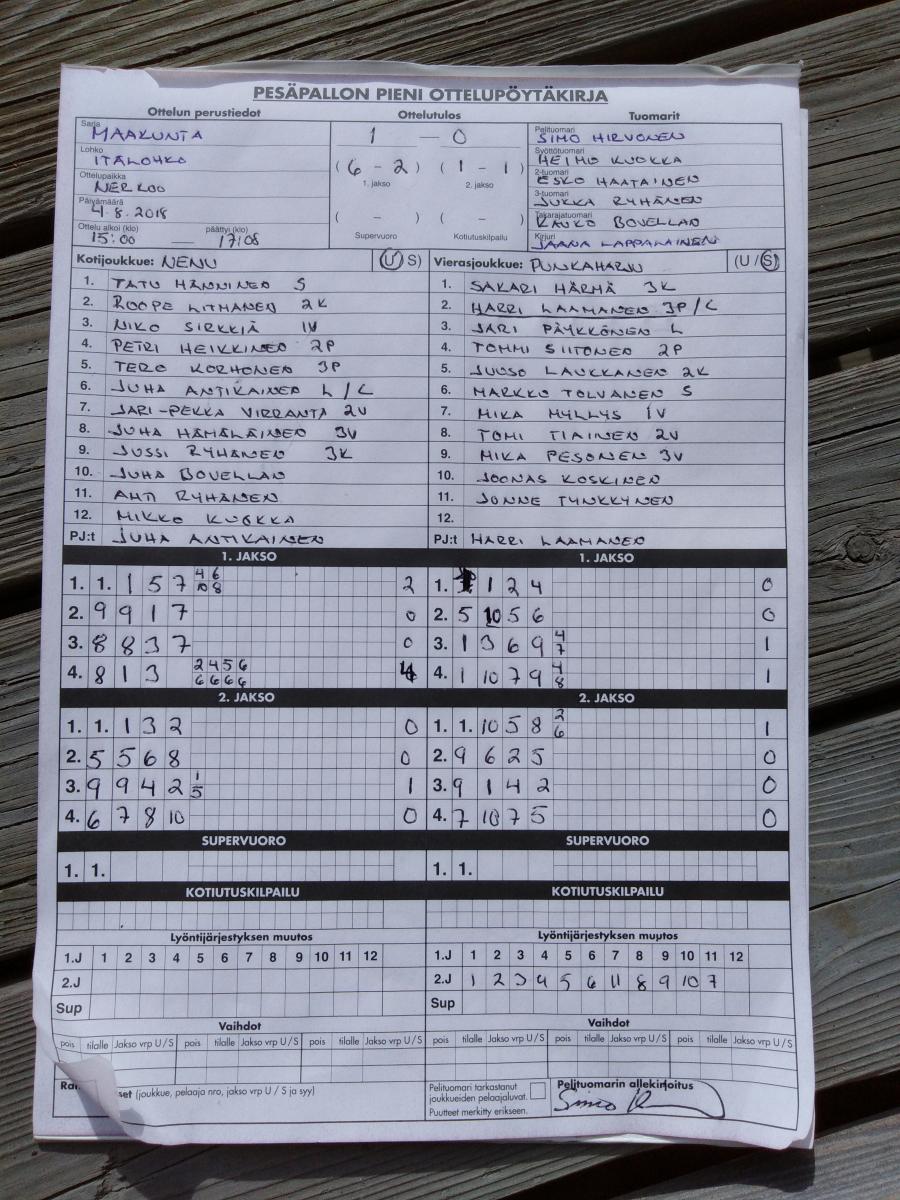 PESÄPALLON PIENI OTTELUPÖYTÄKIRJA
Ottelun perustiedot
Sarja
MAAKUNTA
Lohko
ITÄLOHKO
Ottelupaikka
NERKOO
Päivämäärä
4.8.2018
Ottelu alkoi (klo) päättyi (klo)
15:00 — 17:08
Ottelutulos
1 — 0
( 6 - 2 ) ( 1 - 1 )
1. jakso 2. jakso
( - ) ( - )
Supervuoro Kotiutuskilpailu
Tuomarit
Pelituomari
SIMO HIRVONEN
Syöttötuomari
HEIMO KUOKKA
2-tuomari
ESKO HAATAINEN
3-tuomari
JUKKA RYHÄNEN
Takarajatuomari
KAUKO BOVELLAN
Kirjuri
JAANA LAPPALAINEN
Kotijoukkue: NENU (U/S)
1. TATU HÄNNINEN S
2. ROOPE LITMANEN 2K
3. NIKO SIRKKIÄ 1V
4. PETRI HEIKKINEN 2P
5. TERO KORHONEN 3P
6. JUHA ANTIKAINEN L/C
7. JARI-PEKKA VIRRANTA 2V
8. JUHA HÄMÄLÄINEN 3V
9. JUSSI RYHÄNEN 3K
10. JUHA BOVELLAN
11. AHTI RYHÄNEN
12. MIKKO KUOKKA
PJ:t JUHA ANTIKAINEN
Vierasjoukkue: PUNKAHARJU (U/S)
1. SAKARI HÄRMÄ 3K
2. HARRI LAAMANEN 3P/C
3. JARI PÄYKKÖNEN L
4. TOMMI SIITONEN 2P
5. JUUSO LAUKKANEN 2K
6. MARKKO TOLVANEN S
7. MIKA MYLLYS 1V
8. TOMI TIAINEN 2V
9. MIKA PESONEN 3V
10. JOONAS KOSKINEN
11. JONNE TYNKKYNEN
12.
PJ:t HARRI LAAMANEN
1. JAKSO
1. 1. 1 5 7 4 6 2
10 8
2. 9 9 1 7 0
3. 8 8 3 7 0
4. 8 1 3 2 4 5 6 4
6 6 6 6
1. JAKSO
1. 1 2 4 0
2. 5 10 5 6 0
3. 1 3 6 9 4 1
7
4. 1 10 7 9 4 1
8
2. JAKSO
1. 1. 1 3 2 0
2. 5 5 6 8 0
3. 9 9 4 2 1 1
5
4. 6 7 8 10 0
2. JAKSO
1. 1. 10 5 8 2 1
6
2. 9 6 2 5 0
3. 9 1 4 2 0
4. 7 10 7 5 0
SUPERVUORO
1. 1.
SUPERVUORO
1. 1.
KOTIUTUSKILPAILU
KOTIUTUSKILPAILU
Lyöntijärjestyksen muutos
1.J 1 2 3 4 5 6 7 8 9 10 11 12
2.J
Sup
Lyöntijärjestyksen muutos
1.J 1 2 3 4 5 6 7 8 9 10 11 12
2.J 1 2 3 4 5 6 11 8 9 10 7
Sup
Vaihdot
pois tilalle Jakso vrp U/S pois tilalle Jakso vrp U/S pois tilalle Jakso vrp U/S
Vaihdot
pois tilalle Jakso vrp U/S pois tilalle Jakso vrp U/S pois tilalle Jakso vrp U/S
set (joukkue, pelaaja nro, jakso vrp U / S ja syy)
Pelituomari tarkastanut
joukkueiden pelaajaluvat.
Puutteet merkitty erikseen.
Pelituomarin allekirjoitus
Simo